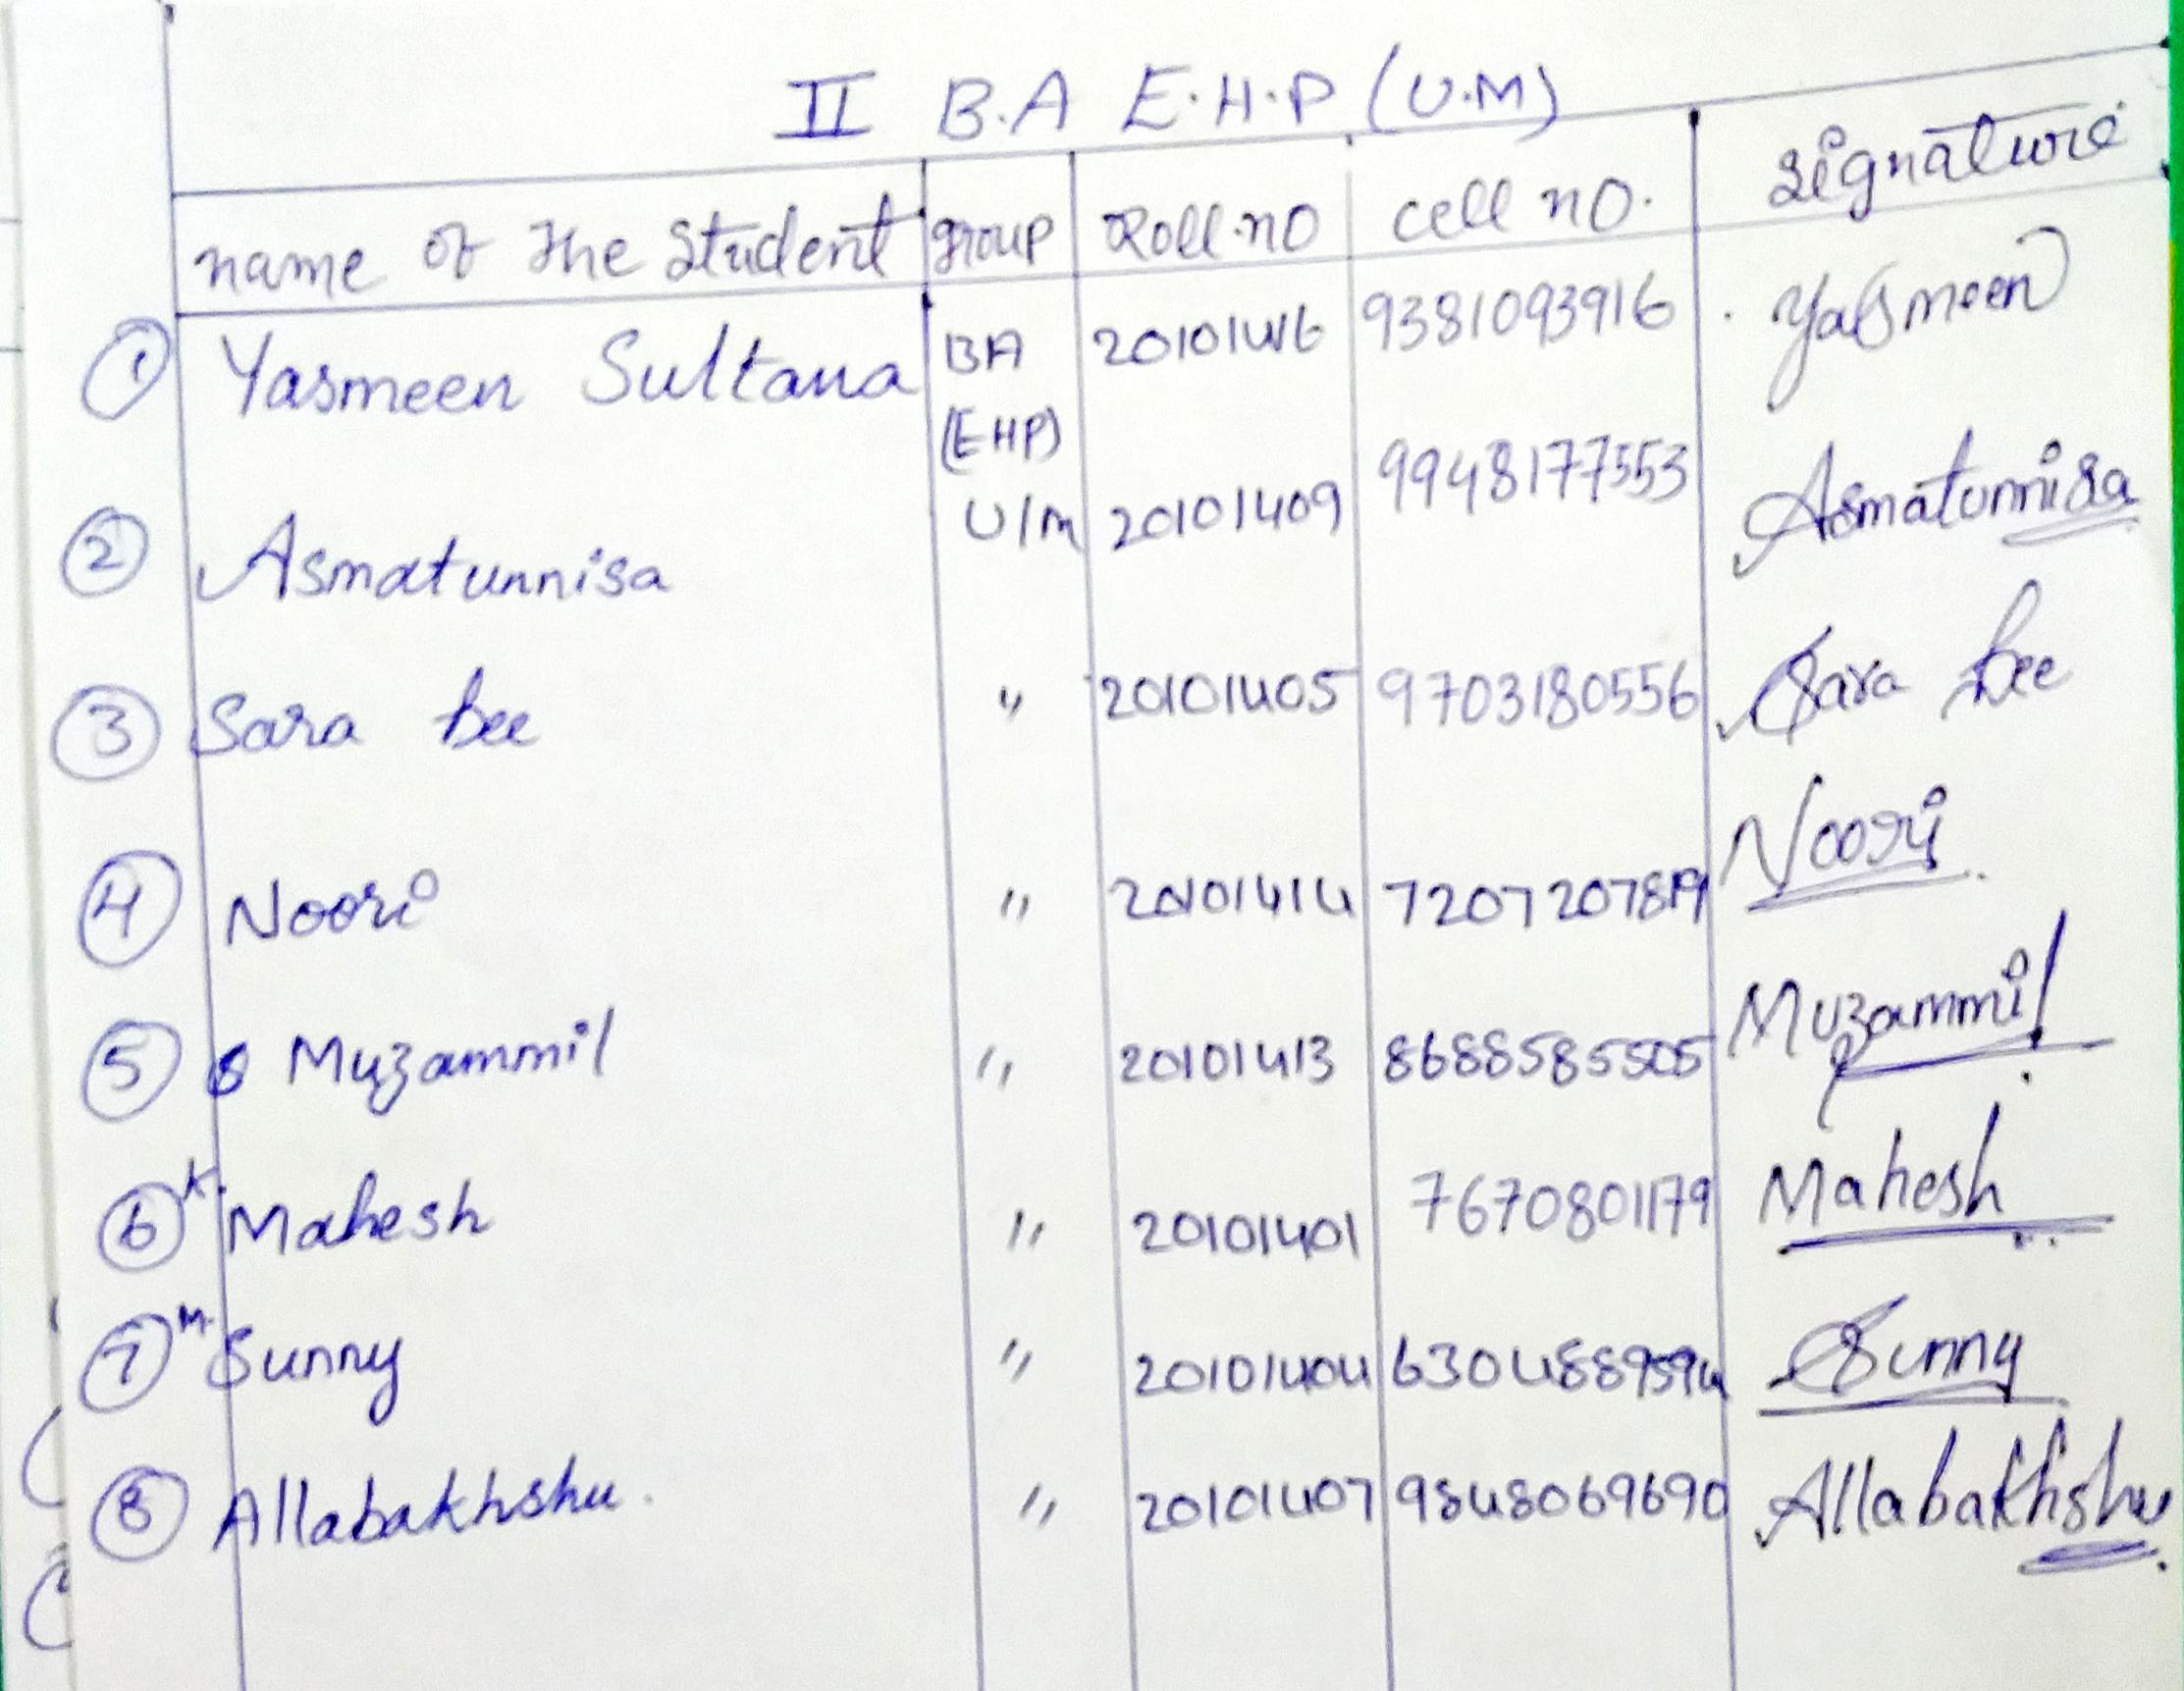 II B.A E.H.P. (U.M)
name of the Student group Roll.no cell no. Signature
1 Yasmeen Sultana BA 20101416 9381093916 Yasmeen
(EHP)
2 Asmatunnisa U/M 20101409 9948177553 Asmatunnisa
3 Sara bee " 20101405 9703180556 Sara bee
4 Noori " 20101414 7207207819 Noori
5 Muzammil " 20101413 8688585505 Muzammil
6 K. Mahesh " 20101401 7670801179 Mahesh
7 M. Sunny " 20101404 6304889594 Sunny
8 Allabakhshu. " 20101407 9848069690 Allabakhshu